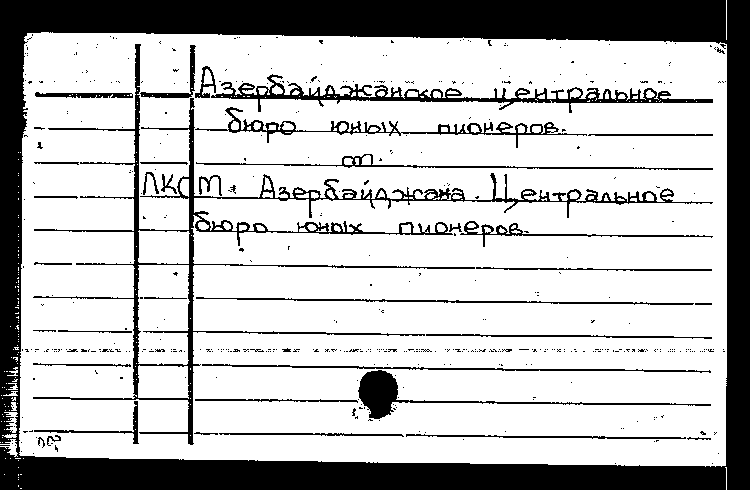 Азербайджанское центральное
бюро юных пионеров.
см.
ЛКСМ. Азербайджана. Центральное
бюро юных пионеров.